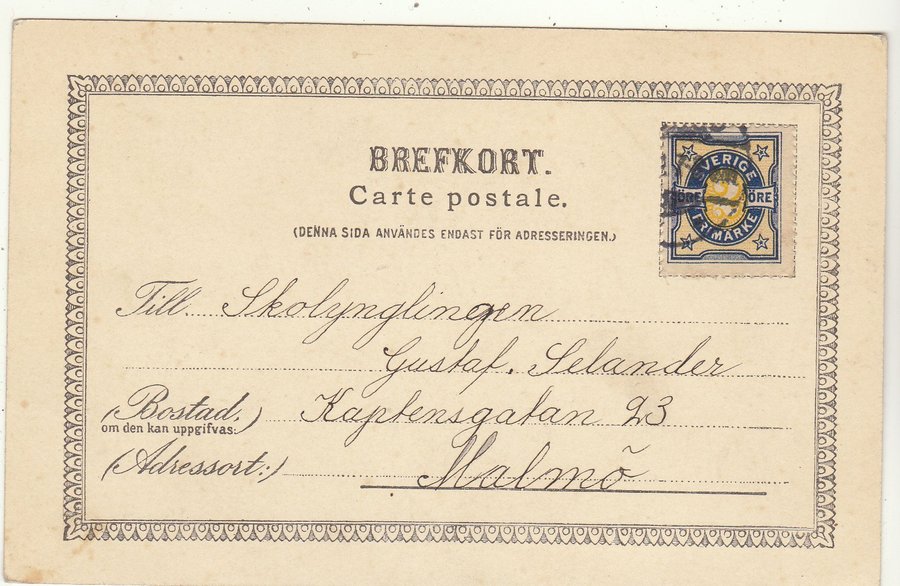 BREFKORT.
Carte postale.
(DENNA SIDA ANVÄNDES ENDAST FÖR ADRESSERINGEN.)
SVERIGE
ÖRE ÖRE
FRIMÄRKE
Till Skolynglingen
Gustaf. Selander
(Bostad.) Kaptensgatan 23
om den kan uppgifvas:
(Adressort:) Malmö